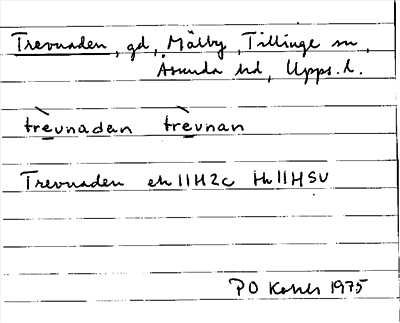 Trevnaden, gd, Mälby, Tillinge sn,
Åsunda hd, Upps. l.
trevnaden trevnan
Trevnaden ek 11H2c Hk 11HSV
PO 1975